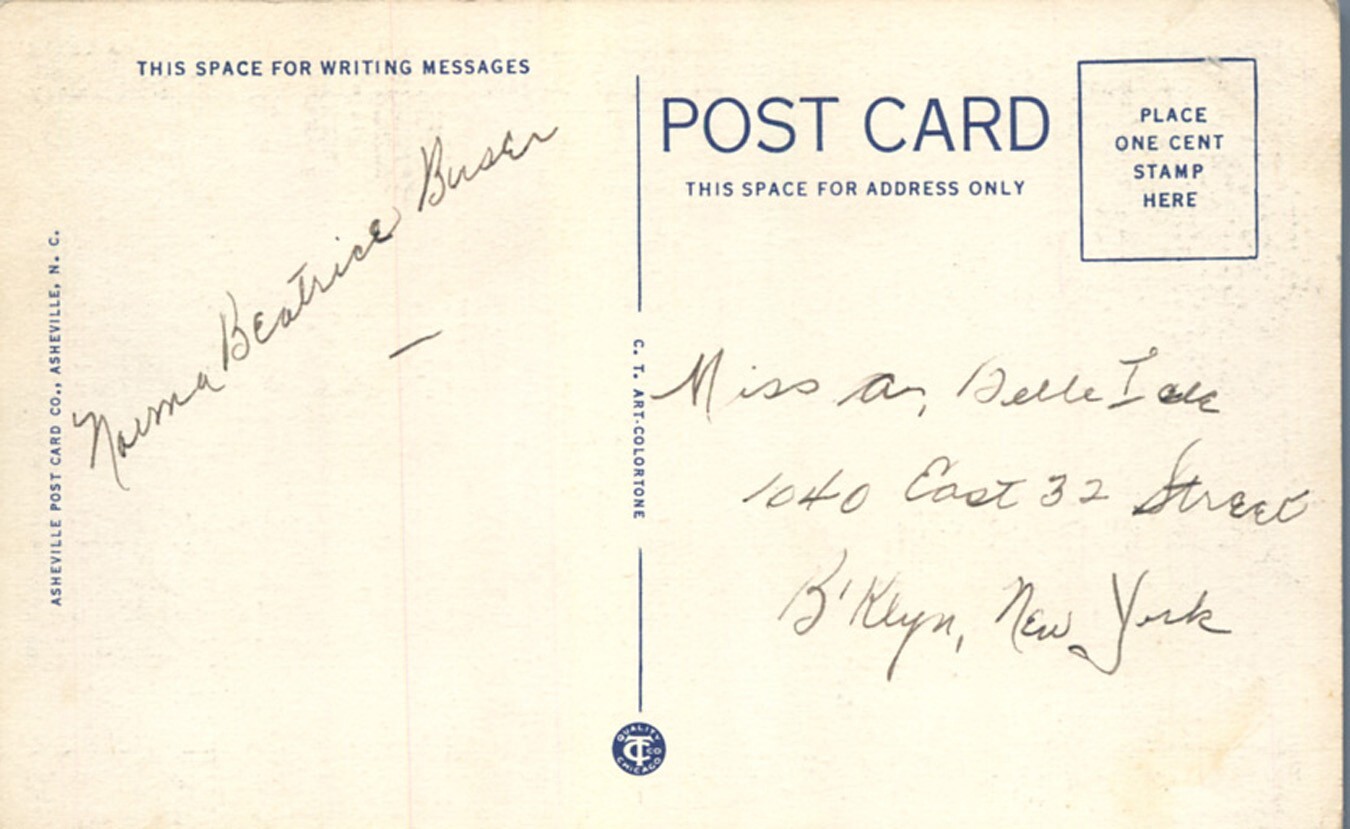 THIS SPACE FOR WRITING MESSAGES
Norma Beatrice Buser
—
ASHEVILLE POST CARD CO., ASHEVILLE, N. C.
C. T. ART-COLORTONE
QUALITY
CT CO
CHICAGO
POST CARD
THIS SPACE FOR ADDRESS ONLY
PLACE
ONE CENT
STAMP
HERE
Miss Belle
1040 East 32 Street
B'Klyn, New York